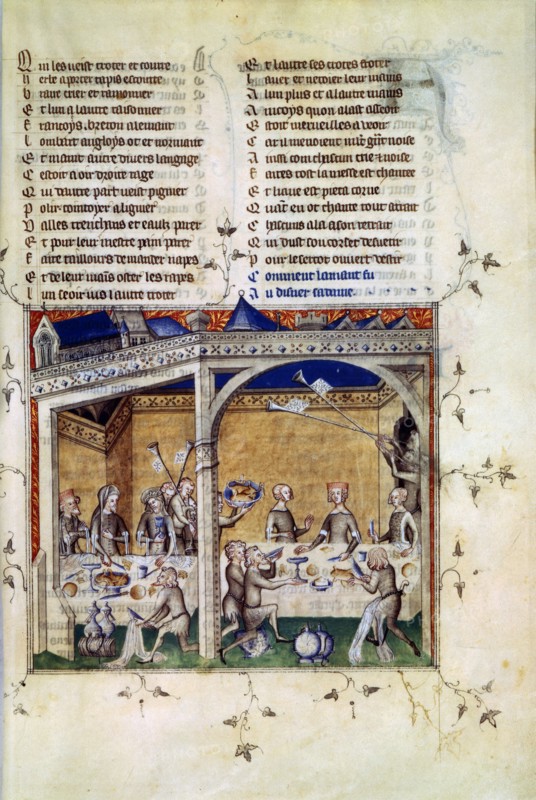 Q ui les veist troter et courre
h erbe aporter tapis escourre
b raire crier et raisonner
E t lun a lautre raisonner
F rancoys breton alemant
l ombart angloys oc et normant
E t maint autre divers langage
C estoit a oir droite rage
Q ui dautre part veist pignier
P our cointoyer aligner
V alles trenchans et eaulz parer
E t pour leur mestre pain parer
F aire tailleurs demander napes
E t de leur mains oster les rapes
l un seoir lautre troter
E t lautre ses crotes froter
l auer et netoier leur mains
A lun plus et a lautre mains
A incoys quon alast asseoir
E stoit merueilles a veoir
C ar il menoient mlt grãt noise
A insi com chascun crie et noise
F aires tost la messe est chantee
E t liaue est pieca cornee
Q uãt eu ot chante tout a trait
C hascuns a la son retrait
Q ui dust son corset desuestir
P our le sercot ouuert vestir
C omment lamant fu
A u disner sa dame